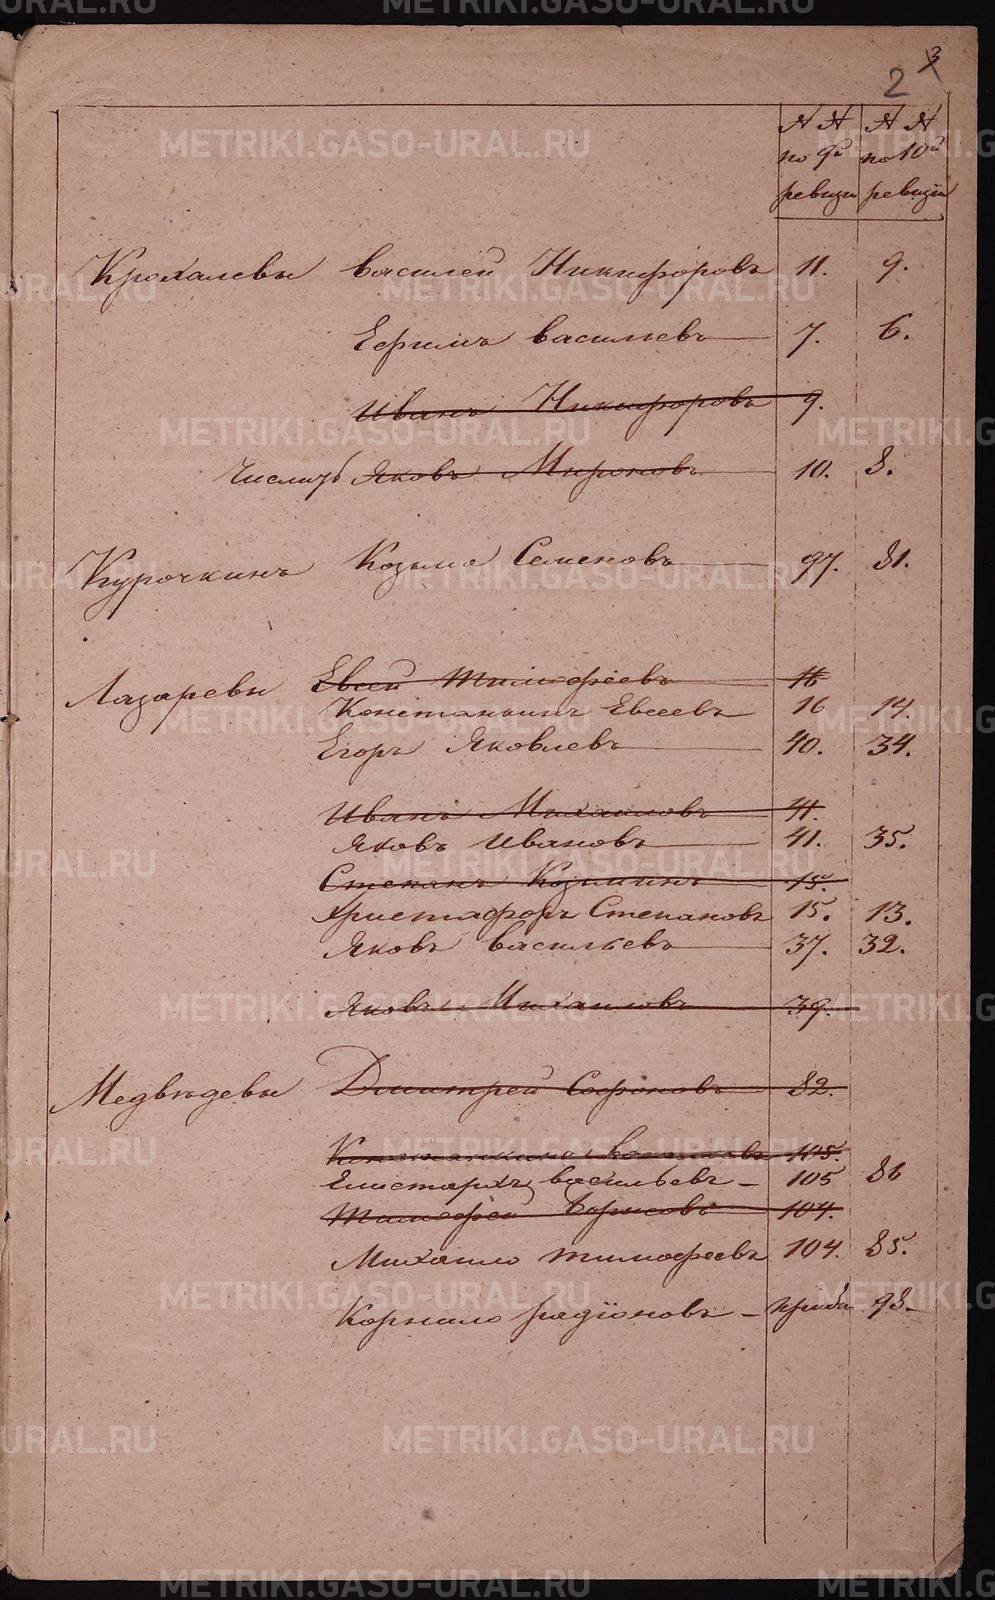 3
2
№ № № №
по 9й по 10й
ревизи ревизи
Крохалевы Василей Никифоровъ 11. 9.
Ефимъ Васильевъ 7. 6.
Иванъ Никифоровъ 9.
Яковъ Мироновъ 10. 8.
Курочкинъ Козьма Семеновъ 97. 81.
Лазаревы Евсей Тимофеевъ 16
Константинъ Евсеевъ 16 14.
Егоръ Яковлевъ 40. 34.
Иванъ Михайловъ 41.
Яковъ Ивановъ 41. 35.
Степанъ Козминъ 15.
Христафоръ Степановъ 15. 13.
Яковъ Васильевъ 37. 32.
Яковъ Михаиловъ 39.
Медвѣдевы Дмитрей Сафоновъ 82.
105.
Елистархъ Васильевъ 105 86
Тимофей Борисовъ 104.
Михаило Тимофеевъ 104. 85.
Корнило Радіоновъ приба 98
METRIKI.GASO-URAL.RU